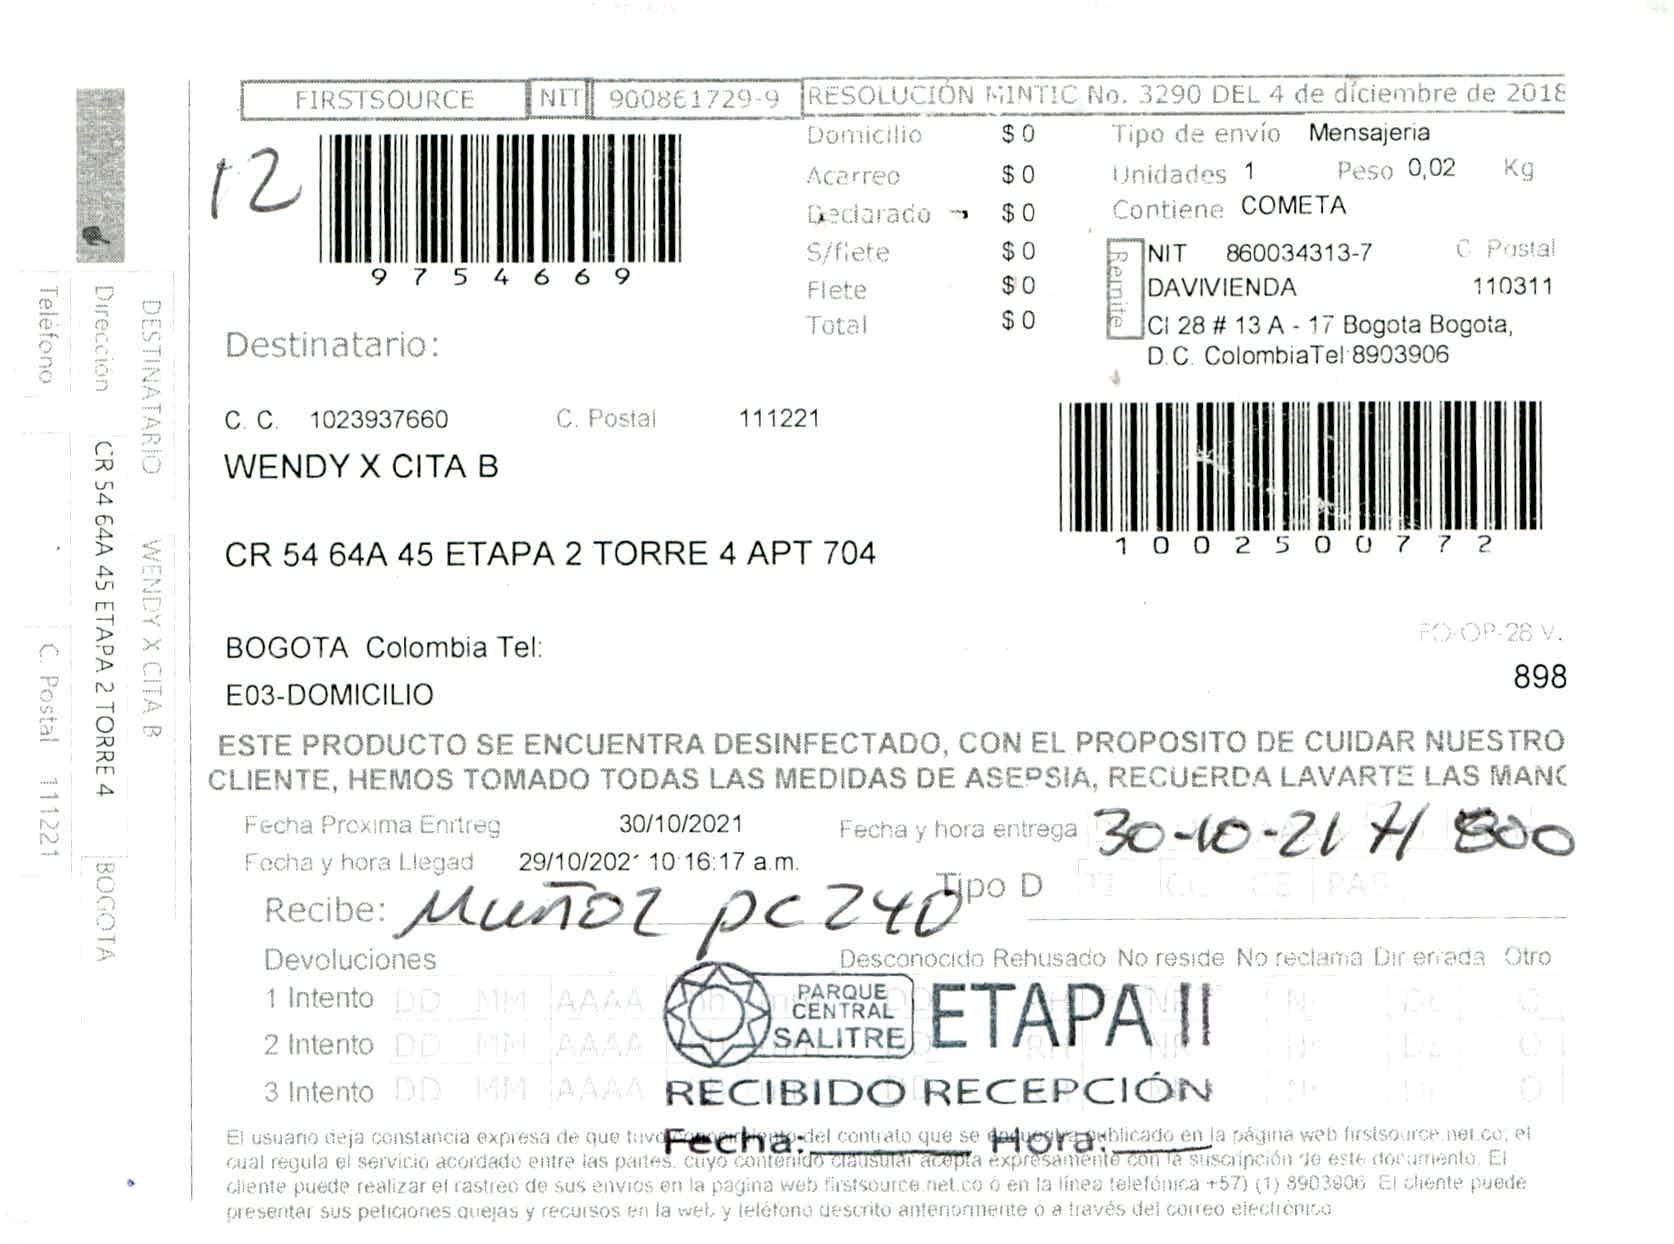 FIRSTSOURCE NIT 900861729-9 RESOLUCIÓN MINTIC No. 3290 DEL 4 de diciembre de 2018
12
9754669
Domicilio $ 0
Acarreo $ 0
Declarado $ 0
S/flete $ 0
Flete $ 0
Total $ 0
Tipo de envío Mensajeria
Unidades 1 Peso 0,02 Kg
Contiene COMETA
Remite
NIT 860034313-7 C Postal
DAVIVIENDA 110311
Cl 28 # 13 A - 17 Bogota Bogota,
D.C. ColombiaTel:8903906
Destinatario:
C. C. 1023937660 C. Postal 111221
WENDY X CITA B
1002500772
CR 54 64A 45 ETAPA 2 TORRE 4 APT 704
BOGOTA Colombia Tel:
E03-DOMICILIO
FO-OP-28 V.
898
ESTE PRODUCTO SE ENCUENTRA DESINFECTADO, CON EL PROPOSITO DE CUIDAR NUESTRO
CLIENTE, HEMOS TOMADO TODAS LAS MEDIDAS DE ASEPSIA, RECUERDA LAVARTE LAS MANO
Fecha Proxima Enitreg 30/10/2021
Fecha y hora entrega 30-10-21 H 800
Fecha y hora Llegad 29/10/2021 10:16:17 a.m.
Tipo D TI CC CE PAS
Recibe: Muñoz pc 240
Devoluciones Desconocido Rehusado No reside No reclama Dir errada Otro
1 Intento DD MM AAAA
2 Intento DD MM AAAA
3 Intento DD MM AAAA
PARQUE
CENTRAL
SALITRE
ETAPA II
RECIBIDO RECEPCIÓN
Fecha: Hora:
El usuario deja constancia expresa de que tuvo conocimiento del contrato que se encuentra publicado en la página web firstsource.net.co, el
cual regula el servicio acordado entre las partes, cuyo contenido clausular acepta expresamente con la suscripción de este documento. El
cliente puede realizar el rastreo de sus envios en la pagina web firstsource.net.co ó en la línea telefónica +57) (1) 8903906 El cliente puede
presentar sus peticiones,quejas y recursos en la web y teléfono descrito anteriormente o a través del correo electrónico
DESTINATARIO WENDY X CITA B
Dirección CR 54 64A 45 ETAPA 2 TORRE 4 BOGOTA
Teléfono C. Postal 111221